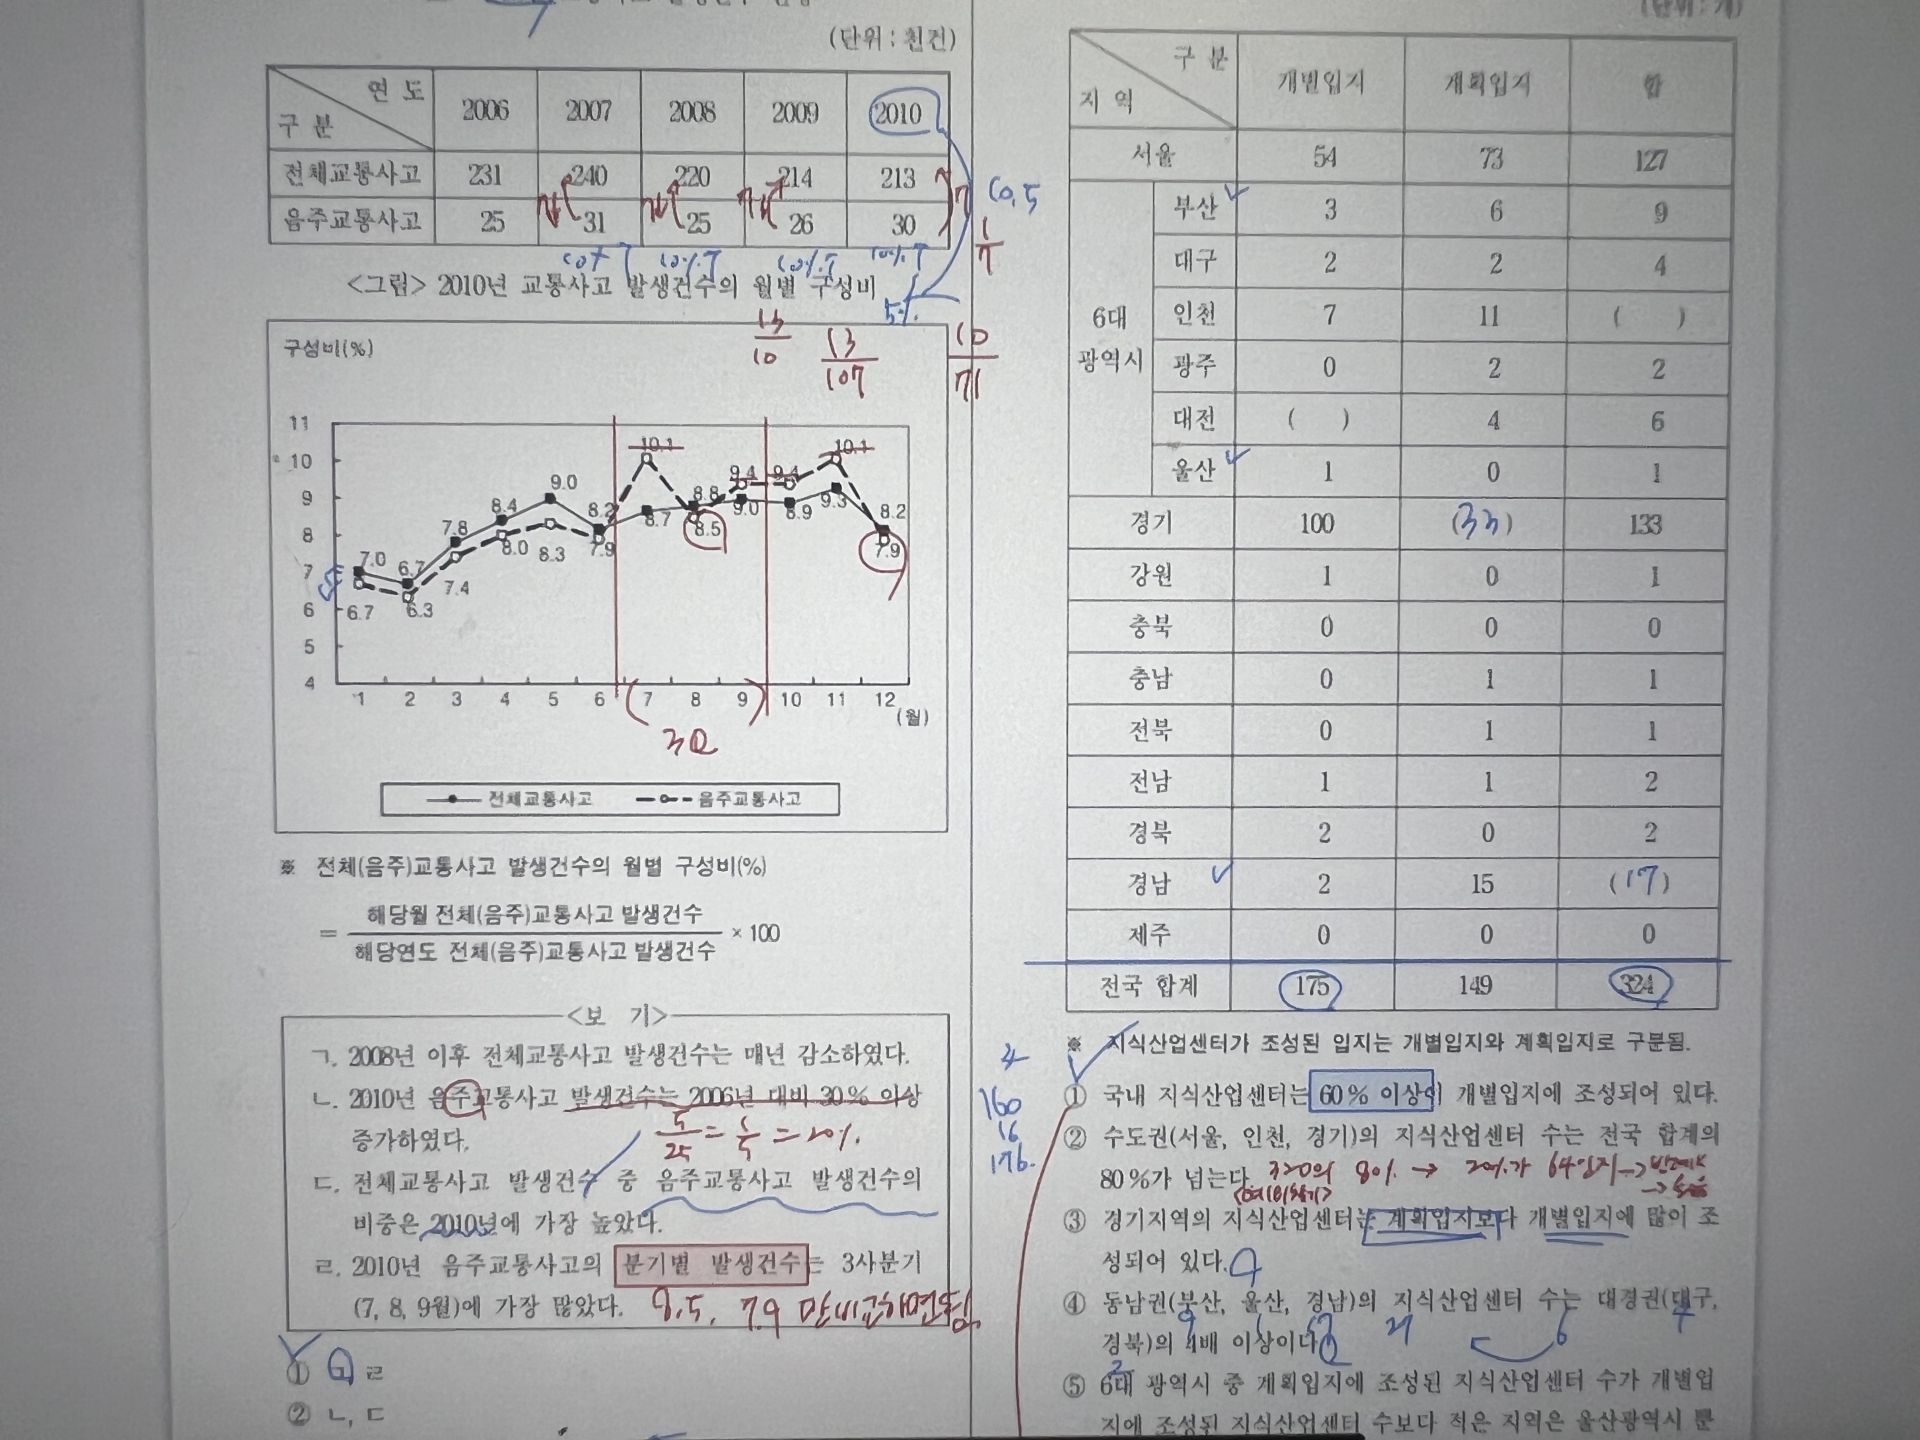 (단위 : 천건)
연 도
구 분
2006 2007 2008 2009 2010
전체교통사고 231 240 220 214 213
음주교통사고 25 31 25 26 30
10%↑ 10%↑ 10%↑
<그림> 2010년 교통사고 발생건수의 월별 구성비
5%
10.5
1/7
13/10
13/107
10/71
구성비(%)
11
10
9
8
7
6
5
4
7.0 6.7 7.8 8.4 9.0 8.2 8.7 8.8 9.0 8.9 9.3 8.2
6.7 6.3 7.4 8.0 8.3 7.9 10.1 8.5 9.4 9.4 10.1 7.9
1 2 3 4 5 6 7 8 9 10 11 12
(월)
전체교통사고 음주교통사고
※ 전체(음주)교통사고 발생건수의 월별 구성비(%)
= 해당월 전체(음주)교통사고 발생건수 / 해당연도 전체(음주)교통사고 발생건수 × 100
<보 기>
ㄱ. 2008년 이후 전체교통사고 발생건수는 매년 감소하였다.
ㄴ. 2010년 음주교통사고 발생건수는 2006년 대비 30% 이상
증가하였다.
5/25 = 1/5 = 20%.
ㄷ. 전체교통사고 발생건수 중 음주교통사고 발생건수의
비중은 2010년에 가장 높았다.
ㄹ. 2010년 음주교통사고의 분기별 발생건수는 3사분기
(7, 8, 9월)에 가장 많았다.
8.5, 7.9 만 비교하면 됨.
① ㄱ, ㄹ
② ㄴ, ㄷ
(단위 : 개)
구 분
지 역
개별입지 계획입지 합
서울 54 73 127
6대
광역시
부산 3 6 9
대구 2 2 4
인천 7 11 ( )
광주 0 2 2
대전 ( ) 4 6
울산 1 0 1
경기 100 (33) 133
강원 1 0 1
충북 0 0 0
충남 0 1 1
전북 0 1 1
전남 1 1 2
경북 2 0 2
경남 2 15 (17)
제주 0 0 0
전국 합계 175 149 324
※ 지식산업센터가 조성된 입지는 개별입지와 계획입지로 구분됨.
160
16
176.
① 국내 지식산업센터는 60% 이상이 개별입지에 조성되어 있다.
② 수도권(서울, 인천, 경기)의 지식산업센터 수는 전국 합계의
80%가 넘는다.
320의 80% → 20%가 64인지 →
③ 경기지역의 지식산업센터는 계획입지보다 개별입지에 많이 조
성되어 있다.
④ 동남권(부산, 울산, 경남)의 지식산업센터 수는 대경권(대구,
9 1 17 27 6 4
경북)의 4배 이상이다.
2
⑤ 6대 광역시 중 계획입지에 조성된 지식산업센터 수가 개별입
지에 조성된 지식산업센터 수보다 적은 지역은 울산광역시 뿐